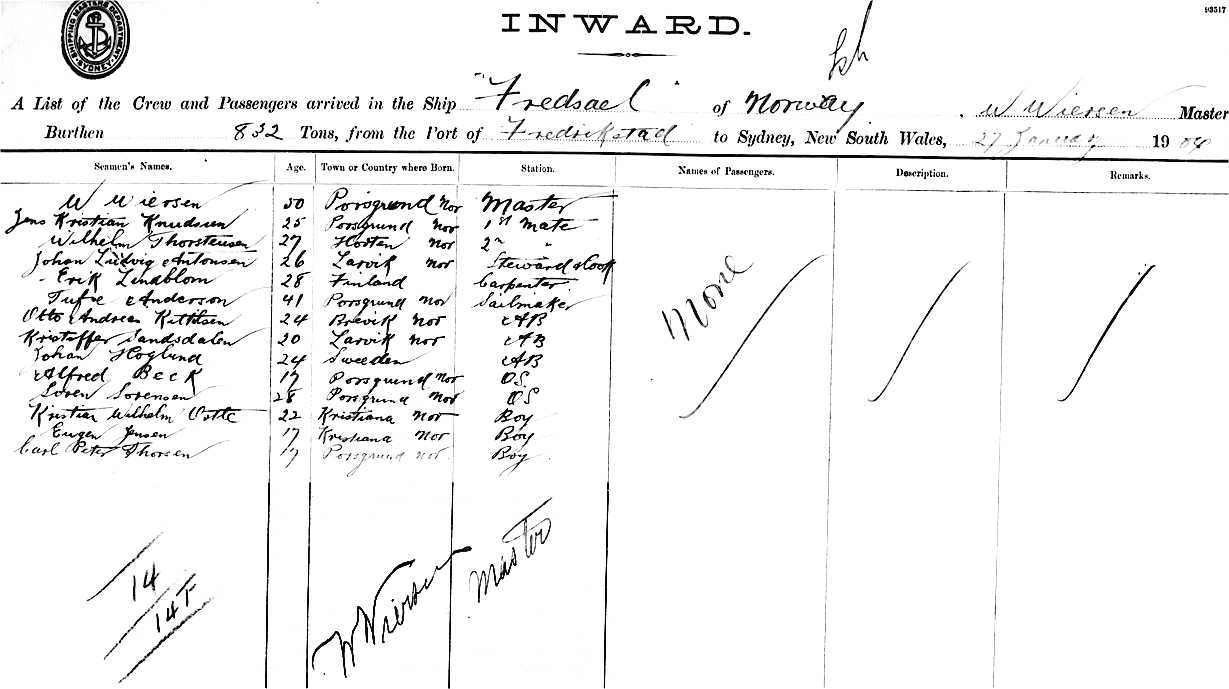 93517
SHIPPING MASTERS DEPARTMENT SYDNEY
INWARD.
A List of the Crew and Passengers arrived in the Ship "Fredsael" of Norway, W Wiersen Master
Burthen 832 Tons, from the Port of Fredrikstad to Sydney, New South Wales, 27 January 1904
Seamen's Names. Age. Town or Country where Born. Station. Names of Passengers. Description. Remarks.
W Wiersen 50 Porsgrund Nor Master
Jens Kristian Knudsen 25 Porsgrund Nor 1st Mate
Wilhelm Thorstensen 27 Horten Nor 2n "
Johan Ludvig Antonsen 26 Larvik Nor Steward & Cook
Erik Lindblom 28 Finland Carpenter
Anderson 41 Porsgrund Nor Sailmaker
Otto Andreas 24 Brevik Nor AB
Kristoffer Sandsdalen 20 Larvik Nor AB
Johan Hoglund 24 Sweeden AB
Alfred Beck 17 Porsgrund Nor OS.
Soren Sorensen 28 Porsgrund Nor OS
Kristian Wilhelm 22 Kristiana Nor Boy
Eugen Jensen 17 Kristiana Nor Boy
Carl Peter Thorsen 17 Porsgrund Nor. Boy
None
14
14T
W Wiersen Master